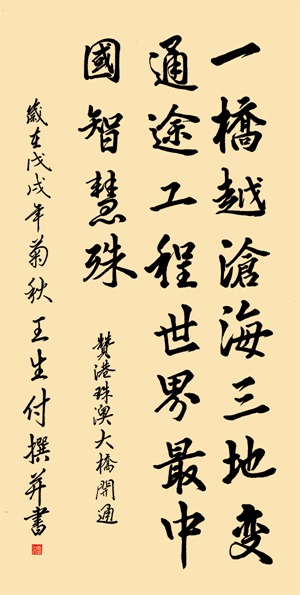 一橋越滄海三地變
通途工程世界最中
國智慧殊
贊港珠澳大橋開通
歲在戊戌年菊秋王生付撰并書